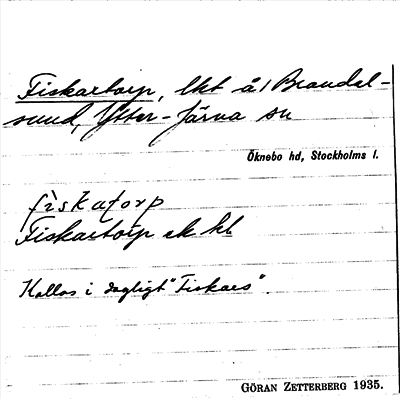 Fiskartorp, lht å/ Brandal-
sund, Ytter-Järna sn
Öknebo hd, Stockholms l.
fiskatorp
Fiskartorp ek kt
Kallas i dagligt "Fiskars".
GÖRAN ZETTERBERG 1935.